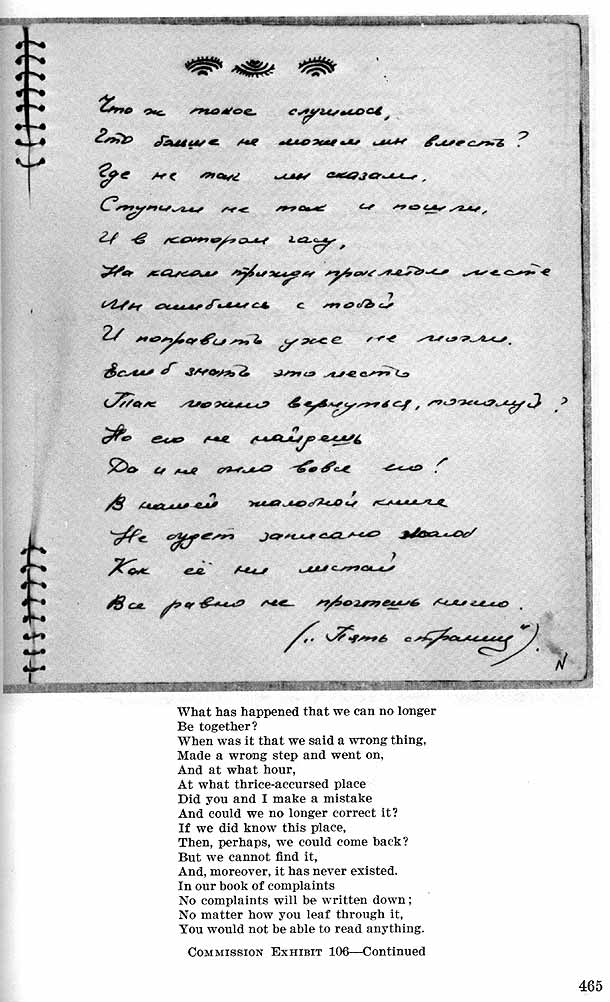 Что ж такое случилось,
Что больше не можем мы вместѣ?
Где не так мы сказали,
Ступили не так и пошли,
И в котором часу,
На каком трижды проклетом месте
Мы ошиблись с тобой
И поправить уже не могли.
Если б знать это место
Так можно вернуться, пожалуй?
Но его не найдешь
Да и не было вовсе его!
В нашей жалобной книге
Не будет записано жалоб
Как её ни листай
Все равно не прочтешь ничего.
(„Пять страниц").
N
What has happened that we can no longer
Be together?
When was it that we said a wrong thing,
Made a wrong step and went on,
And at what hour,
At what thrice-accursed place
Did you and I make a mistake
And could we no longer correct it?
If we did know this place,
Then, perhaps, we could come back?
But we cannot find it,
And, moreover, it has never existed.
In our book of complaints
No complaints will be written down;
No matter how you leaf through it,
You would not be able to read anything.
COMMISSION EXHIBIT 106—Continued
465